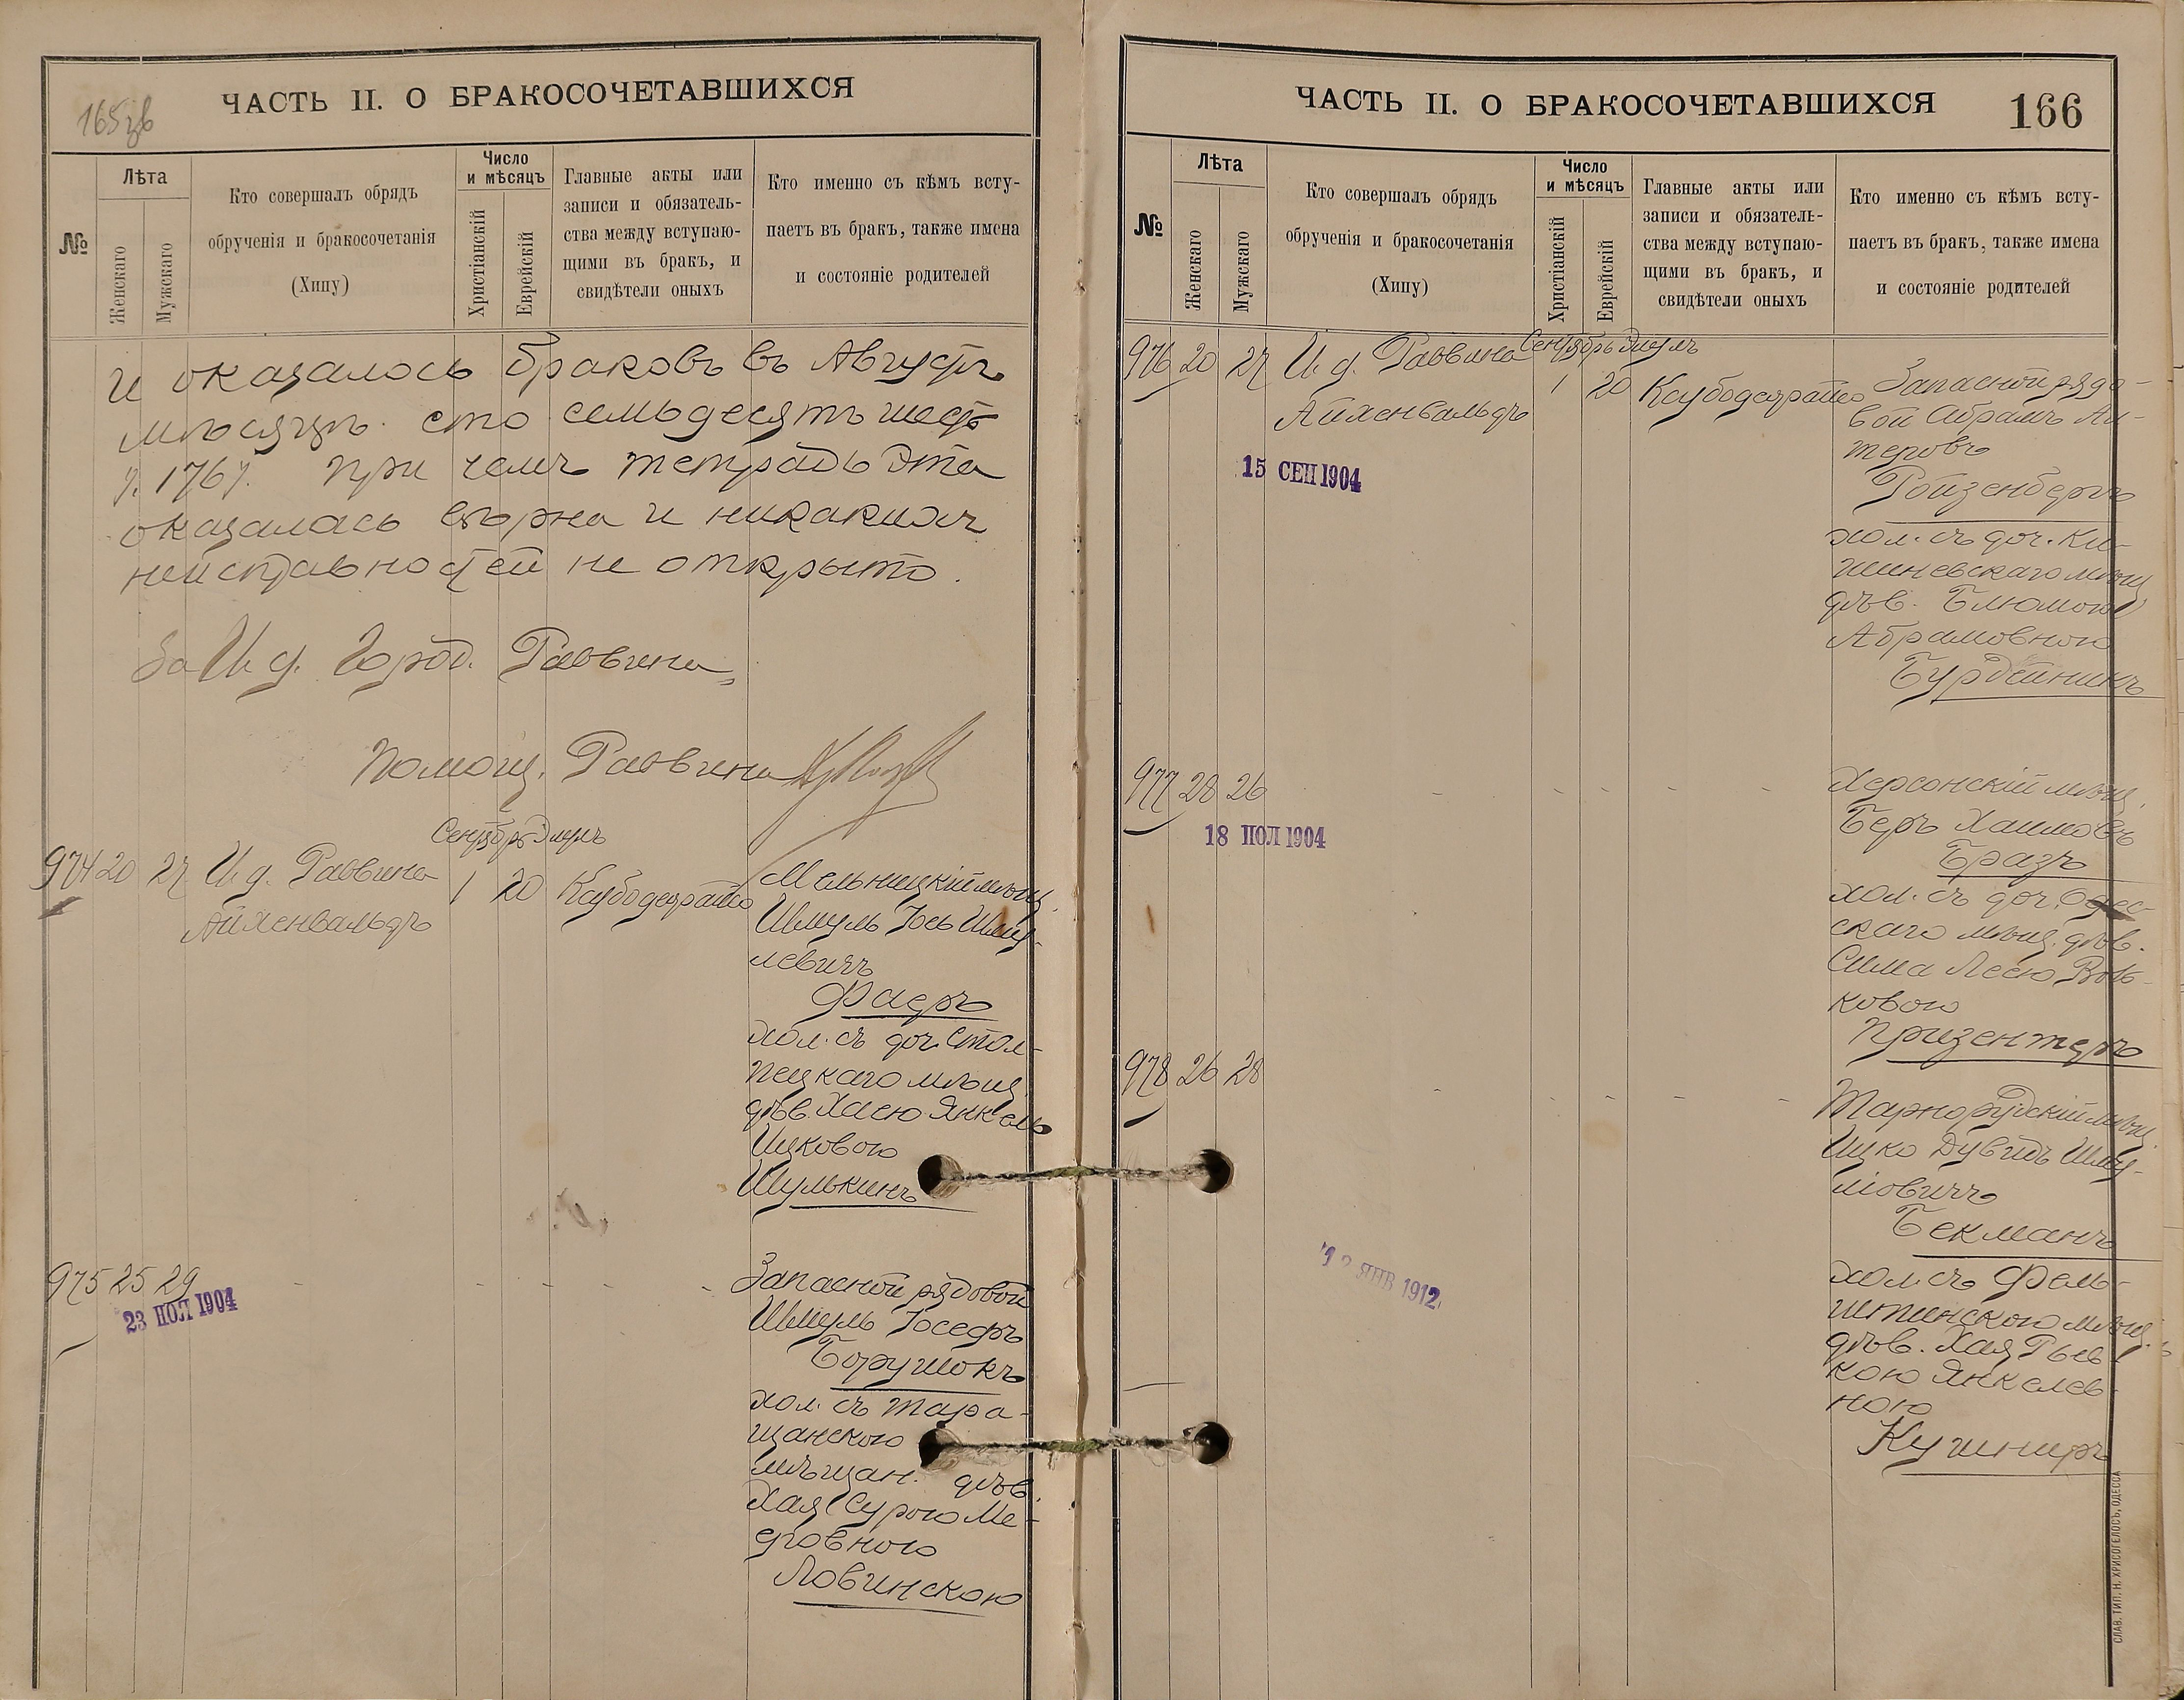 165 об
ЧАСТЬ II. О БРАКОСОЧЕТАВШИХСЯ
№
Лѣта
Женскаго
Мужскаго
Кто совершалъ обрядъ
обрученія и бракосочетанія
(Хипу)
Число
и мѣсяцъ
Христіанскій
Еврейскій
Главные акты или
записи и обязатель-
ства между вступаю-
щими въ бракъ, и
свидѣтели оныхъ
Кто именно съ кѣмъ всту-
паетъ въ бракъ, также имена
и состояніе родителей
И оказалось браковъ въ Августѣ
мѣсяцѣ сто семьдесятъ шесть
/. 176 /. При чемъ тетрадь эта
оказалась вѣрна и никакихъ
неисправностей не открыто.
За И. д. Город. Раввина,
Помощ. Раввина
Сентябрь Элулъ
974 20 27 И. д. Раввина 1 20 Ксубодезрайсо Мельницкій мѣщ.
Айхенвальдъ Шмуль Іось Шму-
левичъ
Фаеръ
хол. съ доч. Стол-
пецкаго мѣщ.
дѣв. Хаею Янкель
Ицковою
Шулькинъ
975 25 29 - - - - - Запасной рядовой
23 НОЯ 1904
Шмуль Іосефъ
Борушокъ
хол. съ Тара-
щанскою
мѣщан. дѣв.
Хая Сурою Ме-
еровною
Ловинскою
ЧАСТЬ II. О БРАКОСОЧЕТАВШИХСЯ
166
№
Лѣта
Женскаго
Мужскаго
Кто совершалъ обрядъ
обрученія и бракосочетанія
(Хипу)
Число
и мѣсяцъ
Христіанскій
Еврейскій
Главные акты или
записи и обязатель-
ства между вступаю-
щими въ бракъ, и
свидѣтели оныхъ
Кто именно съ кѣмъ всту-
паетъ въ бракъ, также имена
и состояніе родителей
Сентябрь Элулъ
976 20 27 И. д. Раввина 1 20 Ксубодезрайсо Запасной рядо-
Айхенвальдъ вой Абрамъ Ал-
теровъ
15 СЕН 1904
Ройзенбергъ
хол. съ доч. Ки-
шиневскаго мѣщ.
дѣв. Блюмою
Абрамовною
Бурдейникъ
977 28 26 - - - - - Херсонскій мѣщ.
18 НОЯ 1904
Беръ Хаимовъ
Бразъ
хол. съ доч. Одес-
скаго мѣщ. дѣв.
Сима Леею Воль-
ковою
Призентеръ
978 26 28 - - - - - Тарнорудскій мѣщ.
Ицко Дувидъ Шму-
ліовичъ
Бекманъ
12 ЯНВ 1912
хол. съ Фель-
штинскою мѣщ.
дѣв. Хая Рыв-
кою Янкелев-
ною
Кушниръ
СЛАВ. ТИП. Н. ХРИСОГЕЛОСЪ, ОДЕССА